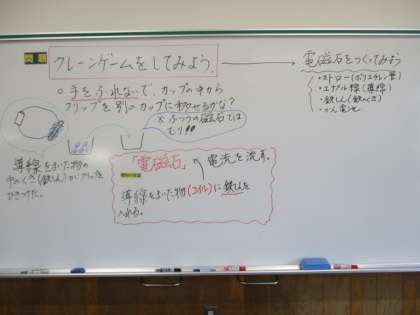 問題
クレーンゲームをしてみよう。
電磁石をつくってみよう
・ストロー(ポリエチレン管)
・エナメル線(導線)
・鉄しん(鉄くぎ)
・かん電池
○手をふれないで、カップの中から
クリップを別のカップに移せるかな?
※ふつうの磁石では
むり!!
「電磁石」
電流を流す。
導線をまいた物(コイル)に鉄しんを
入れる。
導線をまいた物の
中のくぎ(鉄しん)がクリップを
ひきつけた。